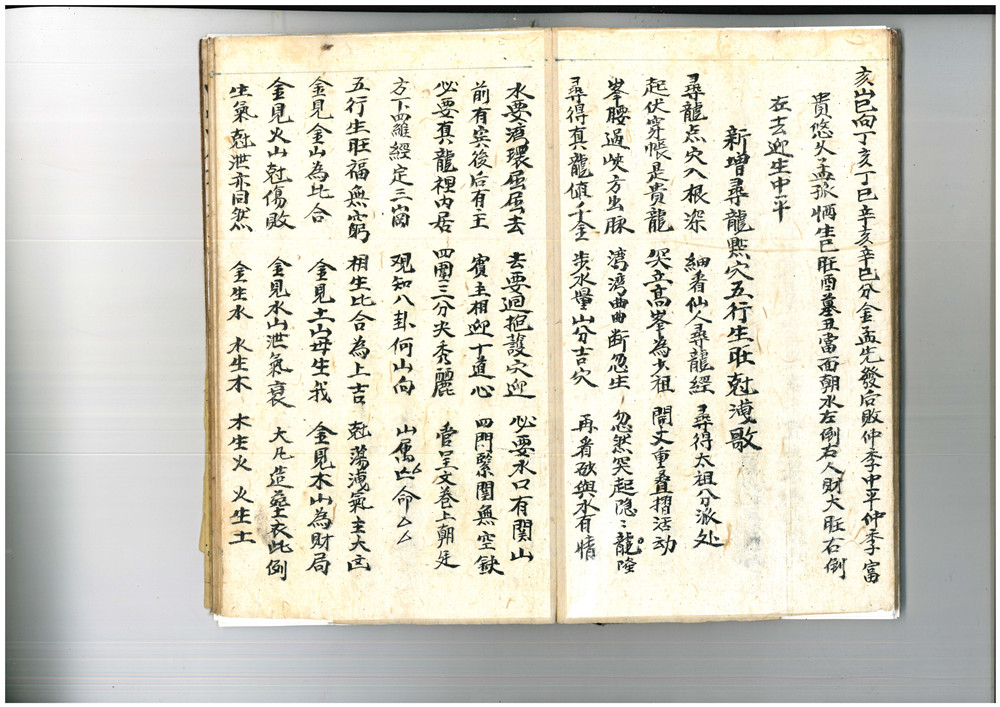 亥山巳向丁亥丁巳辛亥辛巳分金孟先發后敗仲季中平仲季富
貴悠久孟派生巳旺酉墓丑當面朝水左倒右人財大旺右倒
左去迎生中平
新增尋龍點穴五行生旺尅洩歌
尋龍点穴入根深 細看仙人尋龍經 尋得太祖分派处
起伏穿帳是貴龍 突立高峯為少祖 開丈重叠摺活动
峯腰過峡方出脉 湾湾曲曲断忽生 忽然突起隐〻龍隆
尋得真龍傾千金 步水量山分吉穴 再看砂與水有情
水要湾環屈屈去 去要迴抱護穴迎 必要水口有関山
前有宾後后有主 賓主相迎十道心 四門緊閉無空缺
必要真龍裡内居 四圍三分尖秀麗 官呈文卷上朝廷
方下羅經定三崗 观知八卦何山向 山属亡命厶厶
五行生旺福無窮 相生比合為上吉 尅蕩洩氣主大凶
金見金山為比合 金見土山母生我 金見木山為財局
金見火山尅傷敗 金見水山泄氣衰 大凡造塟衣此例
生氣尅泄亦同然 金生水 水生木 木生火 火生土